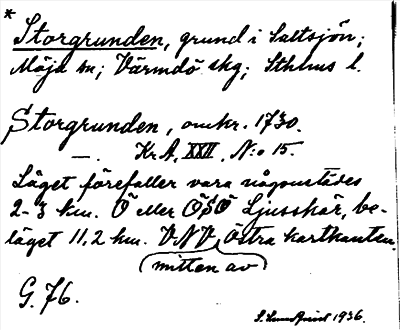 *
Storgrunden, grund i Saltsjön;
Möja sn; Värmdö skg; Sthlms l.
Storgrunden, omkr. 1730.
—. Kr.A, XXII, N:o 15.
Läget förefaller vara någonstädes
2-3 km. Ö eller ÖSÖ Ljusskär, be-
läget 11,2 km. VNV. Östra kartkanten.
(mitten av)
G. 76.
1936.